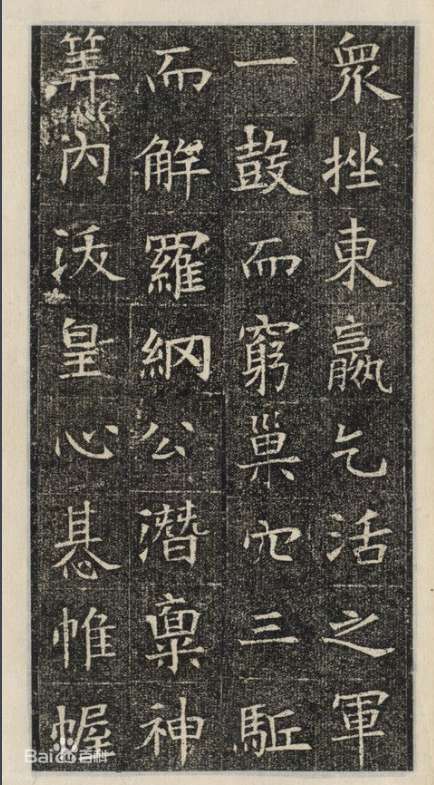 衆挫東嬴乞活之軍
一鼓而窮巢穴三駈
而解羅網公潛稟神
筭內沃皇心惎帷幄
Bai百科